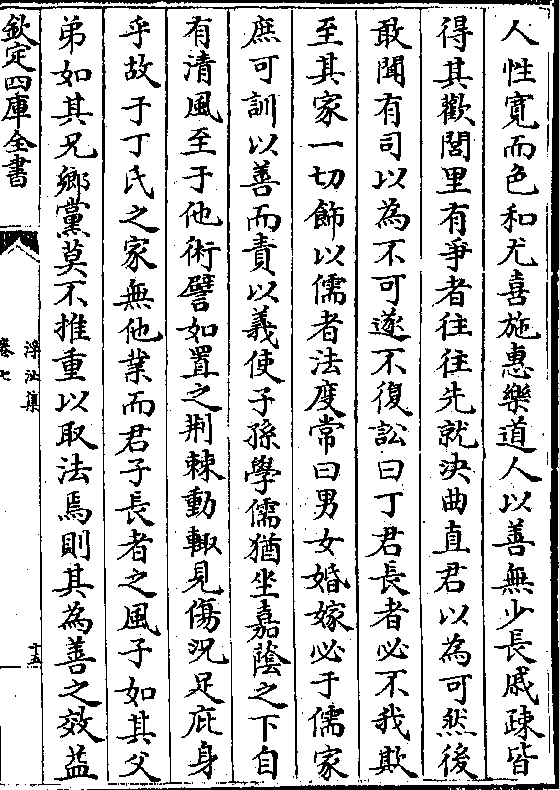 人性寛而色和尤喜施惠樂道人以善無少長戚疎皆
得其歡閭里有爭者往往先就決曲直君以為可然後
敢聞有司以為不可遂不復訟曰丁君長者必不我欺
至其家一切飾以儒者法度常曰男女婚嫁必于儒家
庶可訓以善而責以義使子孫學儒猶坐嘉蔭之下自
有清風至于他術譬如置之荆棘動輙見傷况足庇身
乎故于丁氏之家無他業而君子長者之風子如其父
弟如其兄鄉黨莫不推重以取法焉則其為善之效益
欽定四庫全書
浮沚集
卷七
十五